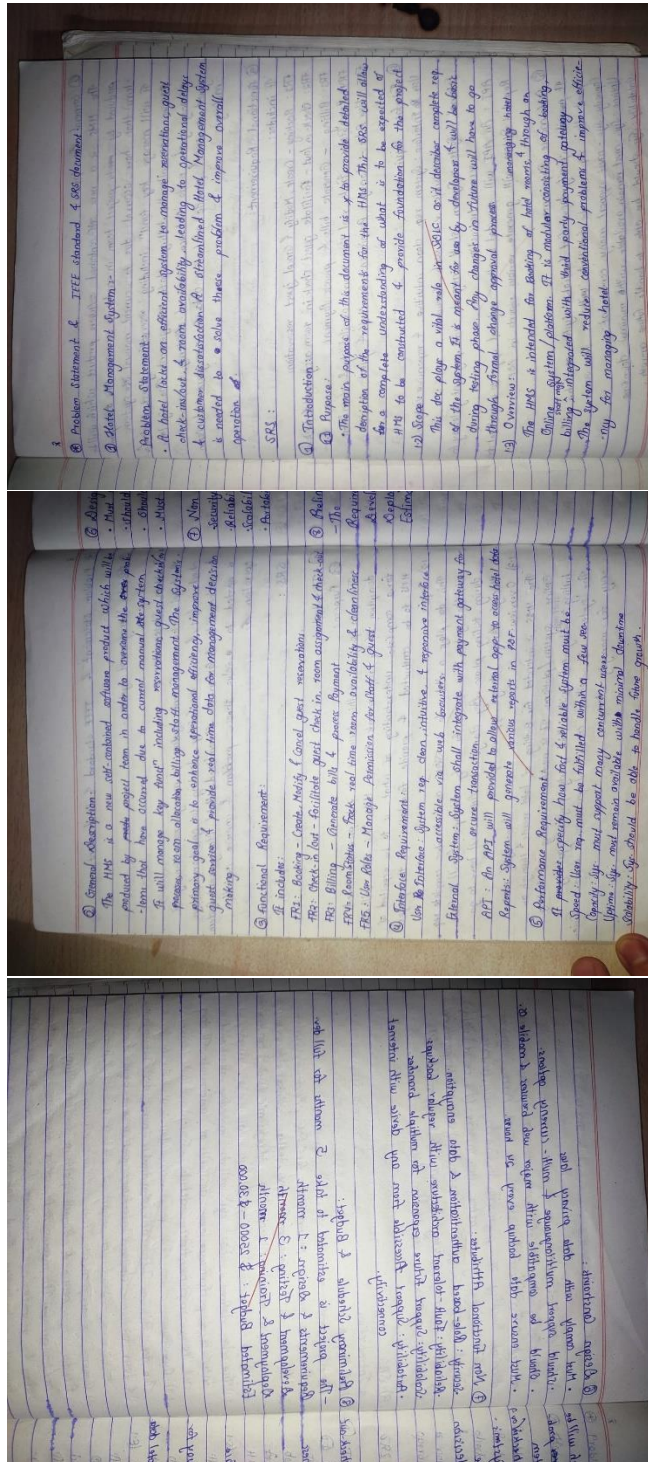 Problem Statement & IEEE standard & SRS document
① Hotel Management System:
Problem Statement:
• A hotel lacks an efficient system to manage reservations, guest
check-in/out & room availability, leading to operational delays
& customer dissatisfaction. A streamlined Hotel Management System
is needed to solve these problem & improve overall
operation
SRS:
① Introduction
1.1 Purpose:
• The main purpose of this document is to provide detailed
description of the requirements for the HMS. This SRS will allow
for a complete understanding of what is to be expected of
HMS to be constructed & provide foundation for the project
1.2) Scope:
This doc plays a vital role in SDLC as it describes complete req
of the system. It is meant for use by developers & will be basic
during testing phase. Any changes in future will have to go
through formal change approval process
1.3) Overview:
managing hotel
The HMS is intended for booking of hotel rooms & through an
Online system/platform. It is modular consisting of booking,
billing & integrated with third party payment gateway
The system will reduce conventional problems & improve efficie-
-ncy for managing hotel
② General Description:
The HMS is a new self-contained software product which will be
produced by project team in order to overcome the prob
-lems that have occurred due to current manual system
It will manage key func including reservations, guest check-in
room allocation, billing & staff management. The system's
primary goal is to enhance operational efficiency, improve
guest service & provide real time data for management decision
making.
③ Functional Requirement:
It includes:
FR1: Booking - Create, Modify & Cancel guest reservations
FR2: Check-in/out - Facilitate guest check in, room assignment & check-out
FR3: Billing - Generate bills & process Payment
FR4: Room Status - Track real time room availability & cleanliness
FR5: User Roles - Manage Permission for Staff & guest
④ Interface Requirement
User Interface: System req clean, intuitive & responsive interface
accessible via web browsers
External System: System shall integrate with payment gateway for
secure transaction
API: An API will provided to allow external app to access hotel data
Reports: System will generate various reports in PDF
⑤ Performance Requirement:
It specify how fast & reliable system must be
Speed: User req. must be fulfilled within a few sec.
Capacity: Sys. must support many concurrent users
Uptime: Sys. must remain available with minimal downtime
Scalability: Sys. should be able to handle future growth.
⑥ Desig
• Must
• Should
• Shoul
• Must
⑦ Non
Security
Reliabi
Scalabil
• Portab
⑧ Prelim
- The
Requir
Devel
Deplo
Estima
⑥ Design Constraint:
• Must comply with data privacy law
• Should support multilanguage & multi-currency options.
• Should be compatible with major web browser & mobile OS
• Must ensure data backup every 24 hours
⑦ Non Functional Attributes:
Security: Role-based authentication & data encryption
Reliability: Fault-tolerant architecture with regular backups
Scalability: Support future expansion for multiple branches
• Portability: Support accessible from any device with internet
connectivity.
⑧ Preliminary Schedule & Budget:
- The project is estimated to take 5 months for full dev
Requirements & Design: 1 month
Development & Testing: 3 months
Deployment & Training: 1 month